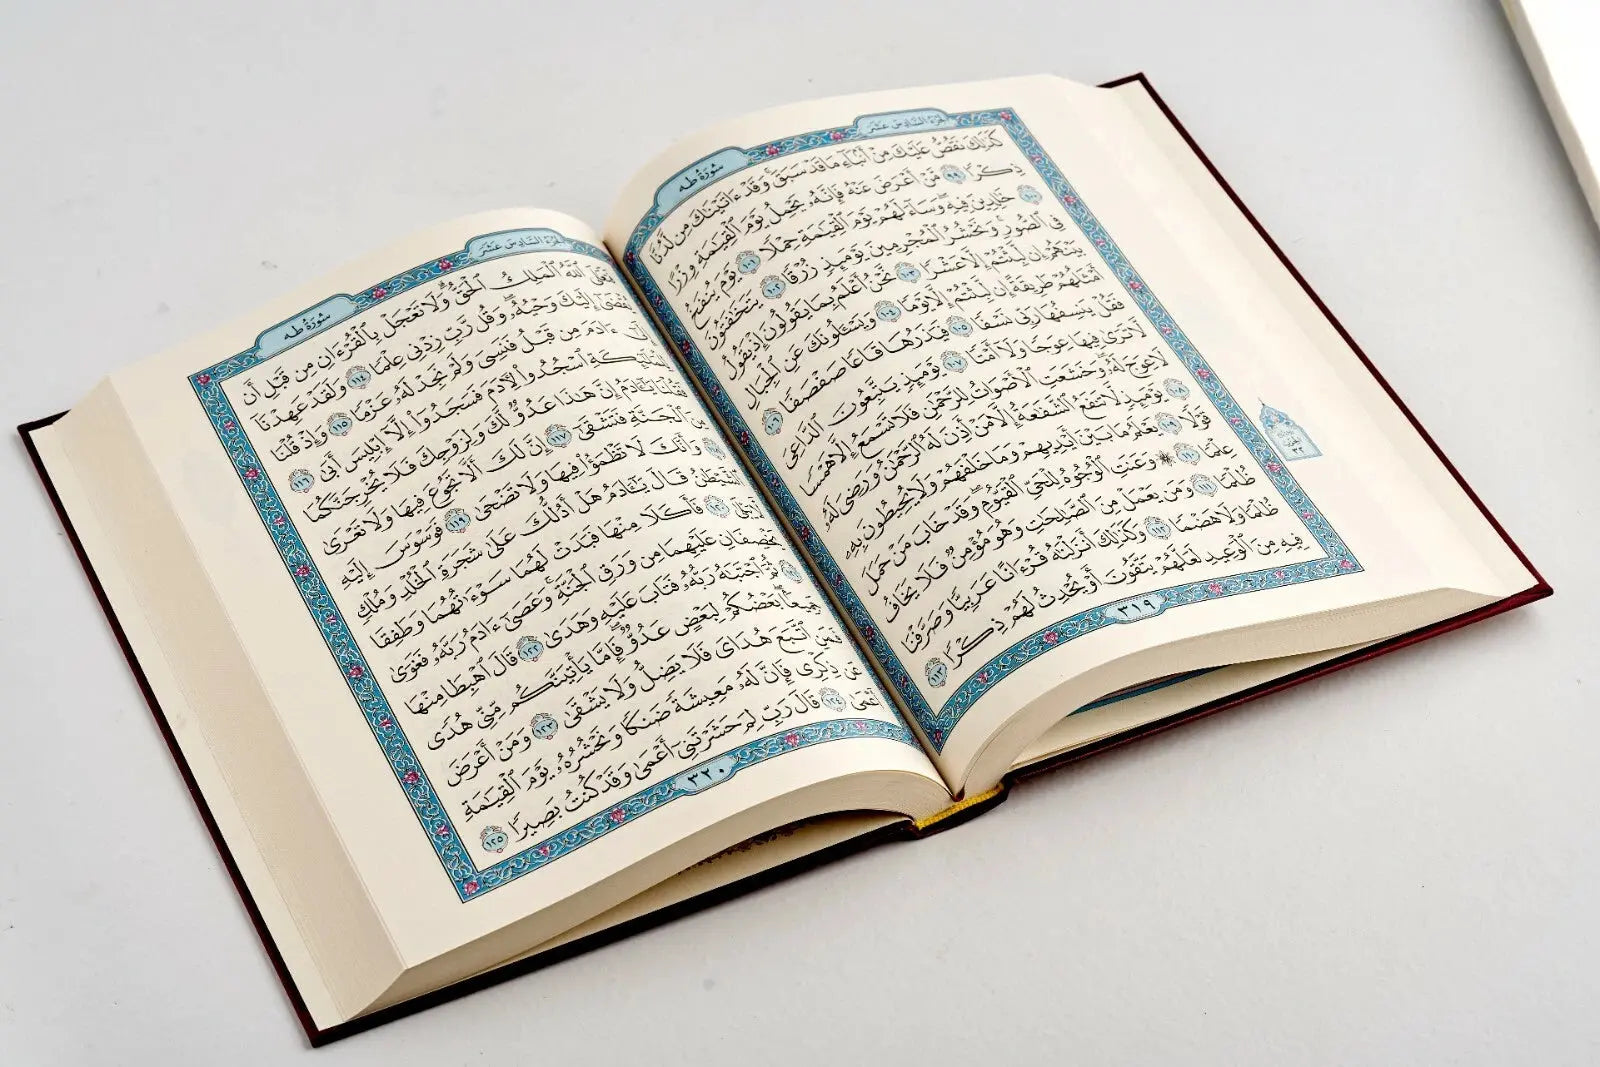 الجزء السادس عشر
سورة طه
كَذَٰلِكَ نَقُصُّ عَلَيْكَ مِنْ أَنۢبَآءِ مَا قَدْ سَبَقَ ۚ وَقَدْ ءَاتَيْنَٰكَ مِن لَّدُنَّا
ذِكْرًا ٩٩ مَّنْ أَعْرَضَ عَنْهُ فَإِنَّهُۥ يَحْمِلُ يَوْمَ ٱلْقِيَٰمَةِ وِزْرًا
١٠٠ خَٰلِدِينَ فِيهِ ۖ وَسَآءَ لَهُمْ يَوْمَ ٱلْقِيَٰمَةِ حِمْلًا ١٠١ يَوْمَ يُنفَخُ
فِى ٱلصُّورِ ۚ وَنَحْشُرُ ٱلْمُجْرِمِينَ يَوْمَئِذٍ زُرْقًا ١٠٢ يَتَخَٰفَتُونَ
بَيْنَهُمْ إِن لَّبِثْتُمْ إِلَّا عَشْرًا ١٠٣ نَّحْنُ أَعْلَمُ بِمَا يَقُولُونَ إِذْ يَقُولُ
أَمْثَلُهُمْ طَرِيقَةً إِن لَّبِثْتُمْ إِلَّا يَوْمًا ١٠٤ وَيَسْـَٔلُونَكَ عَنِ ٱلْجِبَالِ
فَقُلْ يَنسِفُهَا رَبِّى نَسْفًا ١٠٥ فَيَذَرُهَا قَاعًا صَفْصَفًا ١٠٦
لَّا تَرَىٰ فِيهَا عِوَجًا وَلَآ أَمْتًا ١٠٧ يَوْمَئِذٍ يَتَّبِعُونَ ٱلدَّاعِىَ
لَا عِوَجَ لَهُۥ ۖ وَخَشَعَتِ ٱلْأَصْوَاتُ لِلرَّحْمَٰنِ فَلَا تَسْمَعُ إِلَّا هَمْسًا
١٠٨ يَوْمَئِذٍ لَّا تَنفَعُ ٱلشَّفَٰعَةُ إِلَّا مَنْ أَذِنَ لَهُ ٱلرَّحْمَٰنُ وَرَضِىَ لَهُۥ
قَوْلًا ١٠٩ يَعْلَمُ مَا بَيْنَ أَيْدِيهِمْ وَمَا خَلْفَهُمْ وَلَا يُحِيطُونَ بِهِۦ
عِلْمًا ١١٠ ۞ وَعَنَتِ ٱلْوُجُوهُ لِلْحَىِّ ٱلْقَيُّومِ ۖ وَقَدْ خَابَ مَنْ حَمَلَ
ظُلْمًا ١١١ وَمَن يَعْمَلْ مِنَ ٱلصَّٰلِحَٰتِ وَهُوَ مُؤْمِنٌ فَلَا يَخَافُ
ظُلْمًا وَلَا هَضْمًا ١١٢ وَكَذَٰلِكَ أَنزَلْنَٰهُ قُرْءَانًا عَرَبِيًّا وَصَرَّفْنَا
فِيهِ مِنَ ٱلْوَعِيدِ لَعَلَّهُمْ يَتَّقُونَ أَوْ يُحْدِثُ لَهُمْ ذِكْرًا ١١٣
٣١٩
٣٢
الجزء السادس عشر
سورة طه
فَتَعَٰلَى ٱللَّهُ ٱلْمَلِكُ ٱلْحَقُّ ۗ وَلَا تَعْجَلْ بِٱلْقُرْءَانِ مِن قَبْلِ أَن
يُقْضَىٰٓ إِلَيْكَ وَحْيُهُۥ ۖ وَقُل رَّبِّ زِدْنِى عِلْمًا ١١٤ وَلَقَدْ عَهِدْنَآ
إِلَىٰٓ ءَادَمَ مِن قَبْلُ فَنَسِىَ وَلَمْ نَجِدْ لَهُۥ عَزْمًا ١١٥ وَإِذْ قُلْنَا
لِلْمَلَٰٓئِكَةِ ٱسْجُدُوا۟ لِءَادَمَ فَسَجَدُوٓا۟ إِلَّآ إِبْلِيسَ أَبَىٰ ١١٦
فَقُلْنَا يَٰٓـَٔادَمُ إِنَّ هَٰذَا عَدُوٌّ لَّكَ وَلِزَوْجِكَ فَلَا يُخْرِجَنَّكُمَا
مِنَ ٱلْجَنَّةِ فَتَشْقَىٰٓ ١١٧ إِنَّ لَكَ أَلَّا تَجُوعَ فِيهَا وَلَا تَعْرَىٰ
١١٨ وَأَنَّكَ لَا تَظْمَؤُا۟ فِيهَا وَلَا تَضْحَىٰ ١١٩ فَوَسْوَسَ إِلَيْهِ
ٱلشَّيْطَٰنُ قَالَ يَٰٓـَٔادَمُ هَلْ أَدُلُّكَ عَلَىٰ شَجَرَةِ ٱلْخُلْدِ وَمُلْكٍ
لَّا يَبْلَىٰ ١٢٠ فَأَكَلَا مِنْهَا فَبَدَتْ لَهُمَا سَوْءَٰتُهُمَا وَطَفِقَا
يَخْصِفَانِ عَلَيْهِمَا مِن وَرَقِ ٱلْجَنَّةِ ۚ وَعَصَىٰٓ ءَادَمُ رَبَّهُۥ فَغَوَىٰ
١٢١ ثُمَّ ٱجْتَبَٰهُ رَبُّهُۥ فَتَابَ عَلَيْهِ وَهَدَىٰ ١٢٢ قَالَ ٱهْبِطَا مِنْهَا
جَمِيعًۢا ۖ بَعْضُكُمْ لِبَعْضٍ عَدُوٌّ ۖ فَإِمَّا يَأْتِيَنَّكُم مِّنِّى هُدًى
فَمَنِ ٱتَّبَعَ هُدَاىَ فَلَا يَضِلُّ وَلَا يَشْقَىٰ ١٢٣ وَمَنْ أَعْرَضَ
عَن ذِكْرِى فَإِنَّ لَهُۥ مَعِيشَةً ضَنكًا وَنَحْشُرُهُۥ يَوْمَ ٱلْقِيَٰمَةِ
أَعْمَىٰ ١٢٤ قَالَ رَبِّ لِمَ حَشَرْتَنِىٓ أَعْمَىٰ وَقَدْ كُنتُ بَصِيرًا ١٢٥
٣٢٠